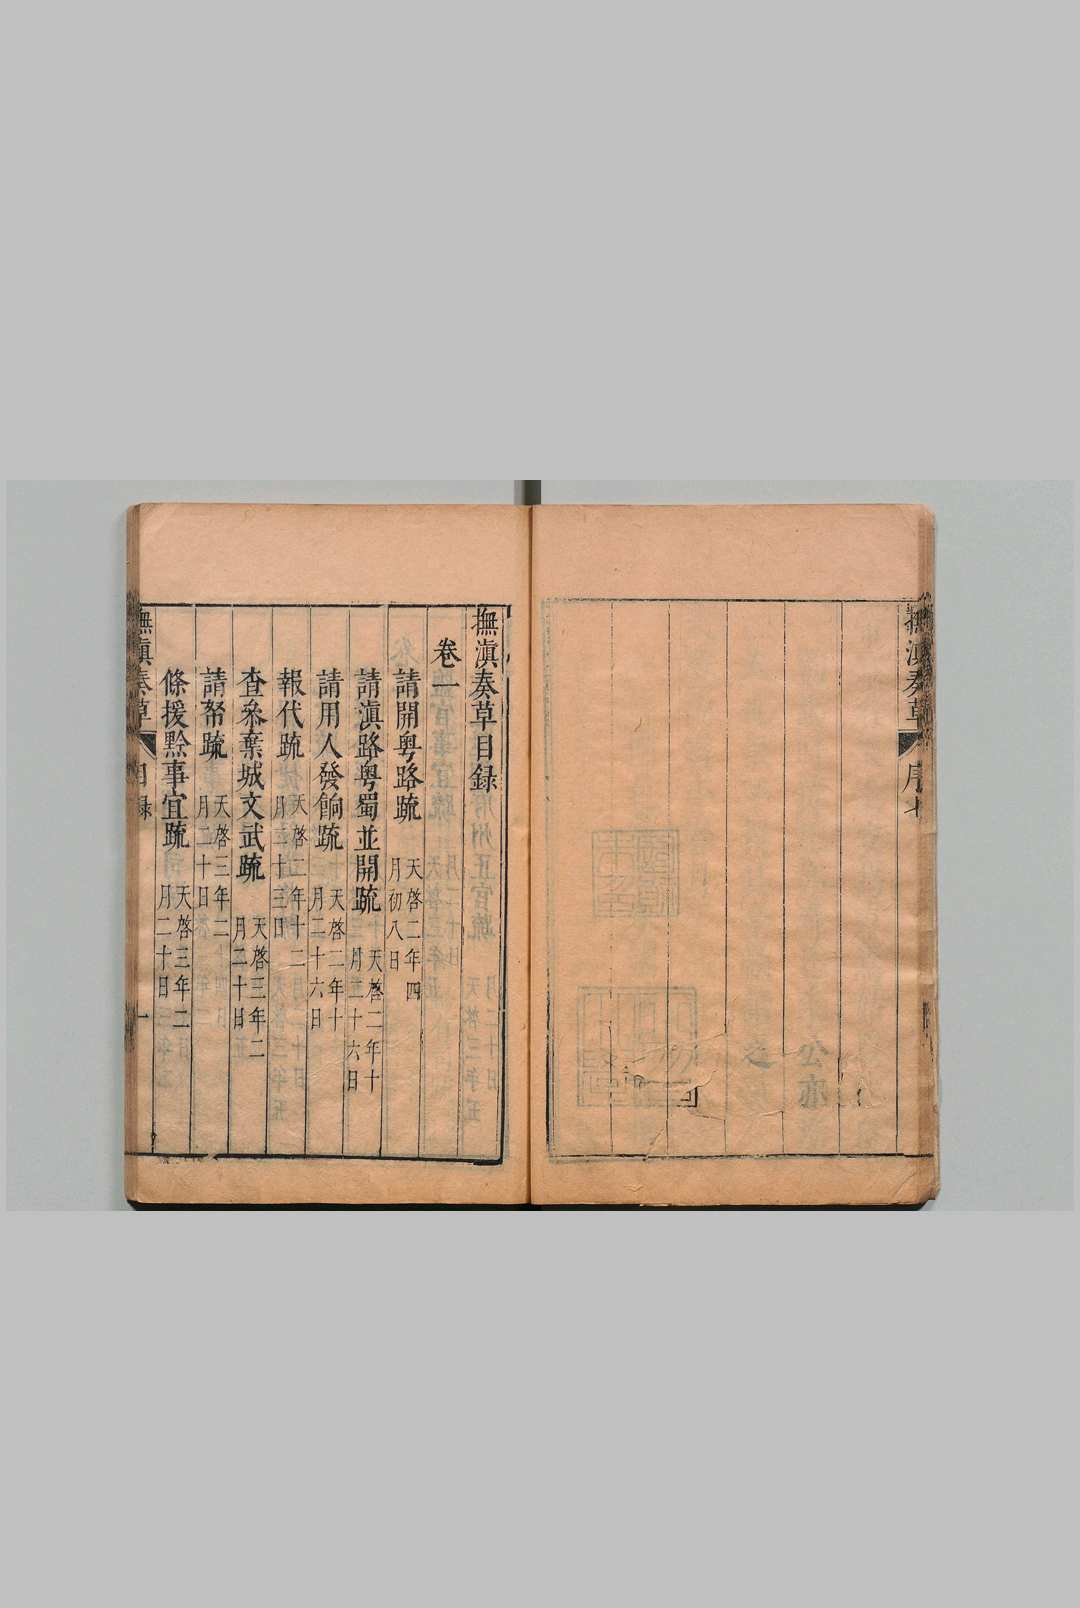 撫滇奏草
序
七
撫滇奏草目録
卷一
請開粤路疏 天啓二年四月初八日
請滇路粤蜀並開疏 天啓二年十月二十六日
請用人發餉疏 天啓二年十月二十六日
報代疏 天啓二年十二月二十三日
查叅棄城文武疏 天啓三年二月二十日
請帑疏 天啓三年二月二十日
條援黔事宜疏 天啓三年二月二十日
撫滇奏草
目録
一